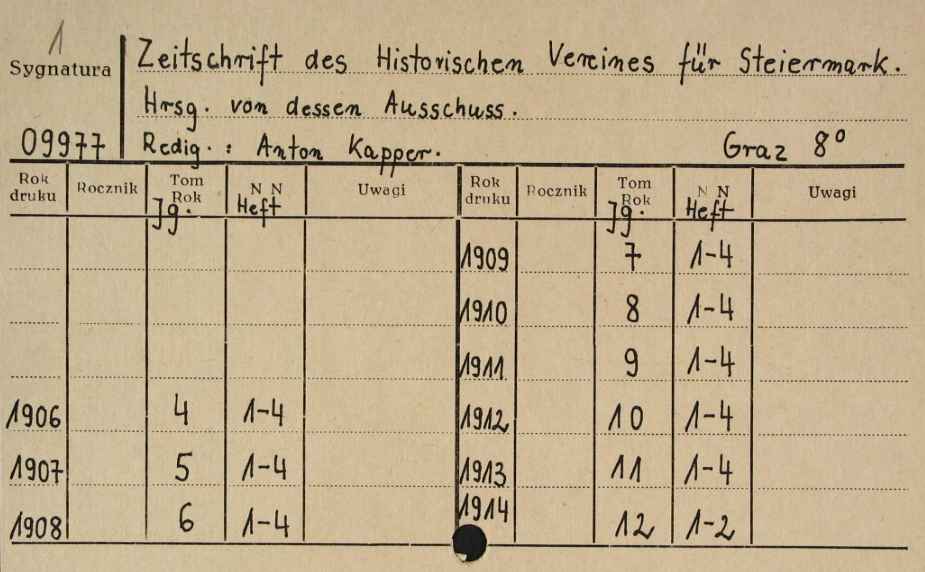 1
Sygnatura
Zeitschrift des Historischen Vereines für Steiermark.
Hrsg. von dessen Ausschuss.
09977 Redig. : Anton Kapper. Graz 8°
Rok druku Rocznik Tom Rok Jg. N N Heft Uwagi Rok druku Rocznik Tom Rok Jg. N N Heft Uwagi
1909 7 1-4
1910 8 1-4
1911 9 1-4
1906 4 1-4 1912 10 1-4
1907 5 1-4 1913 11 1-4
1908 6 1-4 1914 12 1-2